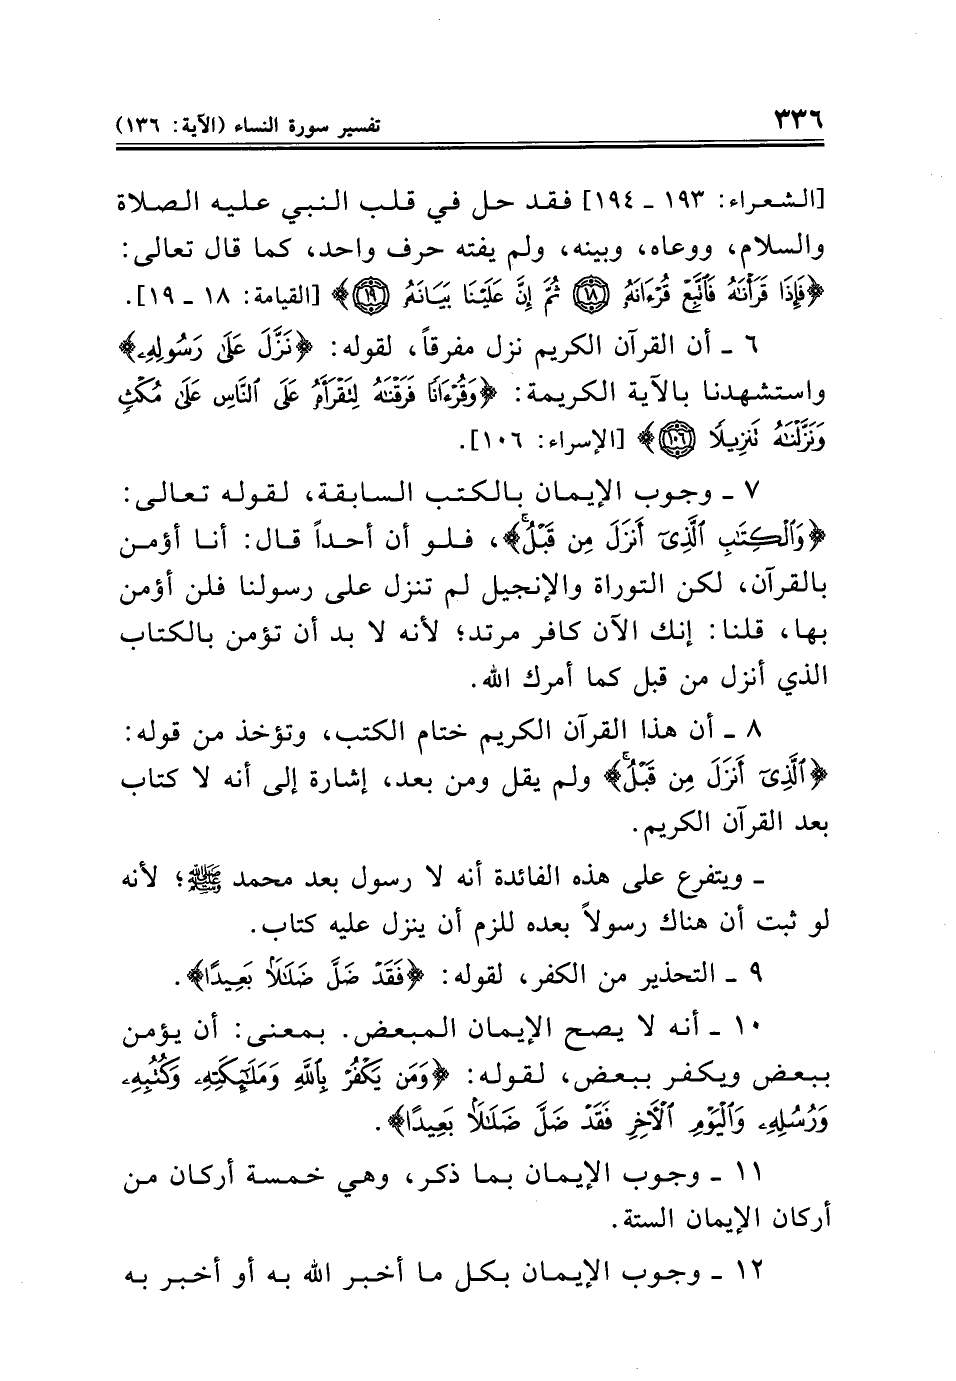 ٣٣٦ تفسير سورة النساء (الآية: ١٣٦)
[الشعراء: ١٩٣ ـ ١٩٤] فقد حل في قلب النبي عليه الصلاة
والسلام، ووعاه، وبينه، ولم يفته حرف واحد، كما قال تعالى:
﴿فَإِذَا قَرَأْنَٰهُ فَٱتَّبِعْ قُرْءَانَهُۥ ١٨ ثُمَّ إِنَّ عَلَيْنَا بَيَانَهُۥ ١٩﴾ [القيامة: ١٨ ـ ١٩].
٦ ـ أن القرآن الكريم نزل مفرقاً، لقوله: ﴿نَزَّلَ عَلَىٰ رَسُولِهِۦ﴾
واستشهدنا بالآية الكريمة: ﴿وَقُرْءَانًا فَرَقْنَٰهُ لِتَقْرَأَهُۥ عَلَى ٱلنَّاسِ عَلَىٰ مُكْثٍ
وَنَزَّلْنَٰهُ تَنزِيلًا ١٠٦﴾ [الإسراء: ١٠٦].
٧ ـ وجوب الإيمان بالكتب السابقة، لقوله تعالى:
﴿وَٱلْكِتَٰبِ ٱلَّذِىٓ أَنزَلَ مِن قَبْلُ ۚ﴾، فلو أن أحداً قال: أنا أؤمن
بالقرآن، لكن التوراة والإنجيل لم تنزل على رسولنا فلن أؤمن
بها، قلنا: إنك الآن كافر مرتد؛ لأنه لا بد أن تؤمن بالكتاب
الذي أنزل من قبل كما أمرك الله.
٨ ـ أن هذا القرآن الكريم ختام الكتب، وتؤخذ من قوله:
﴿ٱلَّذِىٓ أَنزَلَ مِن قَبْلُ ۚ﴾ ولم يقل ومن بعد، إشارة إلى أنه لا كتاب
بعد القرآن الكريم.
ـ ويتفرع على هذه الفائدة أنه لا رسول بعد محمد ﷺ؛ لأنه
لو ثبت أن هناك رسولاً بعده للزم أن ينزل عليه كتاب.
٩ ـ التحذير من الكفر، لقوله: ﴿فَقَدْ ضَلَّ ضَلَٰلًۢا بَعِيدًا﴾.
١٠ ـ أنه لا يصح الإيمان المبعض. بمعنى: أن يؤمن
ببعض ويكفر ببعض، لقوله: ﴿وَمَن يَكْفُرْ بِٱللَّهِ وَمَلَٰٓئِكَتِهِۦ وَكُتُبِهِۦ
وَرُسُلِهِۦ وَٱلْيَوْمِ ٱلْءَاخِرِ فَقَدْ ضَلَّ ضَلَٰلًۢا بَعِيدًا﴾.
١١ ـ وجوب الإيمان بما ذكر، وهي خمسة أركان من
أركان الإيمان الستة.
١٢ ـ وجوب الإيمان بكل ما أخبر الله به أو أخبر به